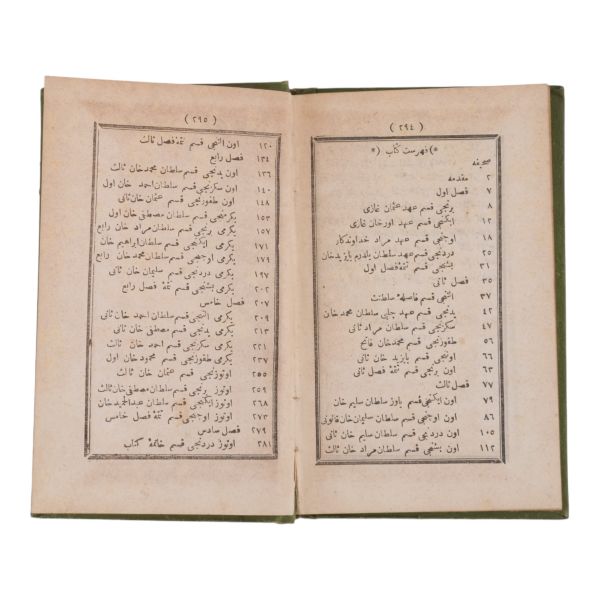 ( ٢٩٤ )
*) فهرست كتاب (*
صحيفه
٢ مقدمه
٧ فصل اول
٨ برنجى قسم عهد عثمان غازى
١٢ ايكنجى قسم عهد اورخان غازى
١٨ اوچنجى قسم عهد مراد خداوندكار
٢٥ دردنجى قسم عهد سلطان يلدرم بايزيد خان
٣١ بشنجى قسم تتمهٔ فصل اول
٣٥ فصل ثانى
٣٧ التنجى قسم فاصلهٔ سلطنت
٤٢ يدنجى قسم عهد چلبى سلطان محمد خان
٤٧ سكزنجى قسم سلطان مراد ثانى
٥٦ طقوزنجى قسم محمد خان فاتح
٦٦ اوننجى قسم بايزيد خان ثانى
٦٣ اون برنجى قسم تتمهٔ فصل ثانى
٧٧ فصل ثالث
٧٩ اون ايكنجى قسم ياوز سلطان سليم خان
٨٦ اون اوچنجى قسم سلطان سليمان خان قانونى
١٠٥ اون دردنجى قسم سلطان سليم خان ثانى
١١٢ اون بشنجى قسم سلطان مراد خان ثالث
( ٢٩٥ )
١٢٠ اون التنجى قسم تتمهٔ فصل ثالث
١٣٤ فصل رابع
١٣٦ اون يدنجى قسم سلطان محمد خان ثالث
١٤٠ اون سكزنجى قسم سلطان احمد خان اول
١٤٨ اون طقوزنجى قسم عثمان خان ثانى
١٥٣ يكرمنجى قسم سلطان مصطفى خان اول
١٥٧ يكرمى برنجى قسم سلطان مراد خان رابع
١٧١ يكرمى ايكنجى قسم سلطان ابراهيم خان
١٧٩ يكرمى اوچنجى قسم محمد خان رابع
١٩٧ يكرمى دردنجى قسم سليمان خان ثانى
٢٠٢ يكرمى بشنجى قسم تتمهٔ فصل رابع
٢٠٧ فصل خامس
٢٠٩ يكرمى التنجى قسم سلطان احمد خان ثانى
٢١٣ يكرمى يدنجى قسم مصطفى خان ثانى
٢٢١ يكرمى سكزنجى قسم احمد خان ثالث
٢٣٧ يكرمى طقوزنجى قسم محمود خان اول
٢٥٥ اوتوزنجى قسم عثمان خان ثالث
٢٥٩ اوتوز برنجى قسم سلطان مصطفى خان ثالث
٢٦٨ اوتوز ايكنجى قسم سلطان عبد الحميد خان
٢٧٣ اوتوز اوچنجى قسم تتمهٔ فصل خامس
٢٧٩ فصل سادس
٢٨١ اوتوز دردنجى قسم خاتمهٔ كتاب